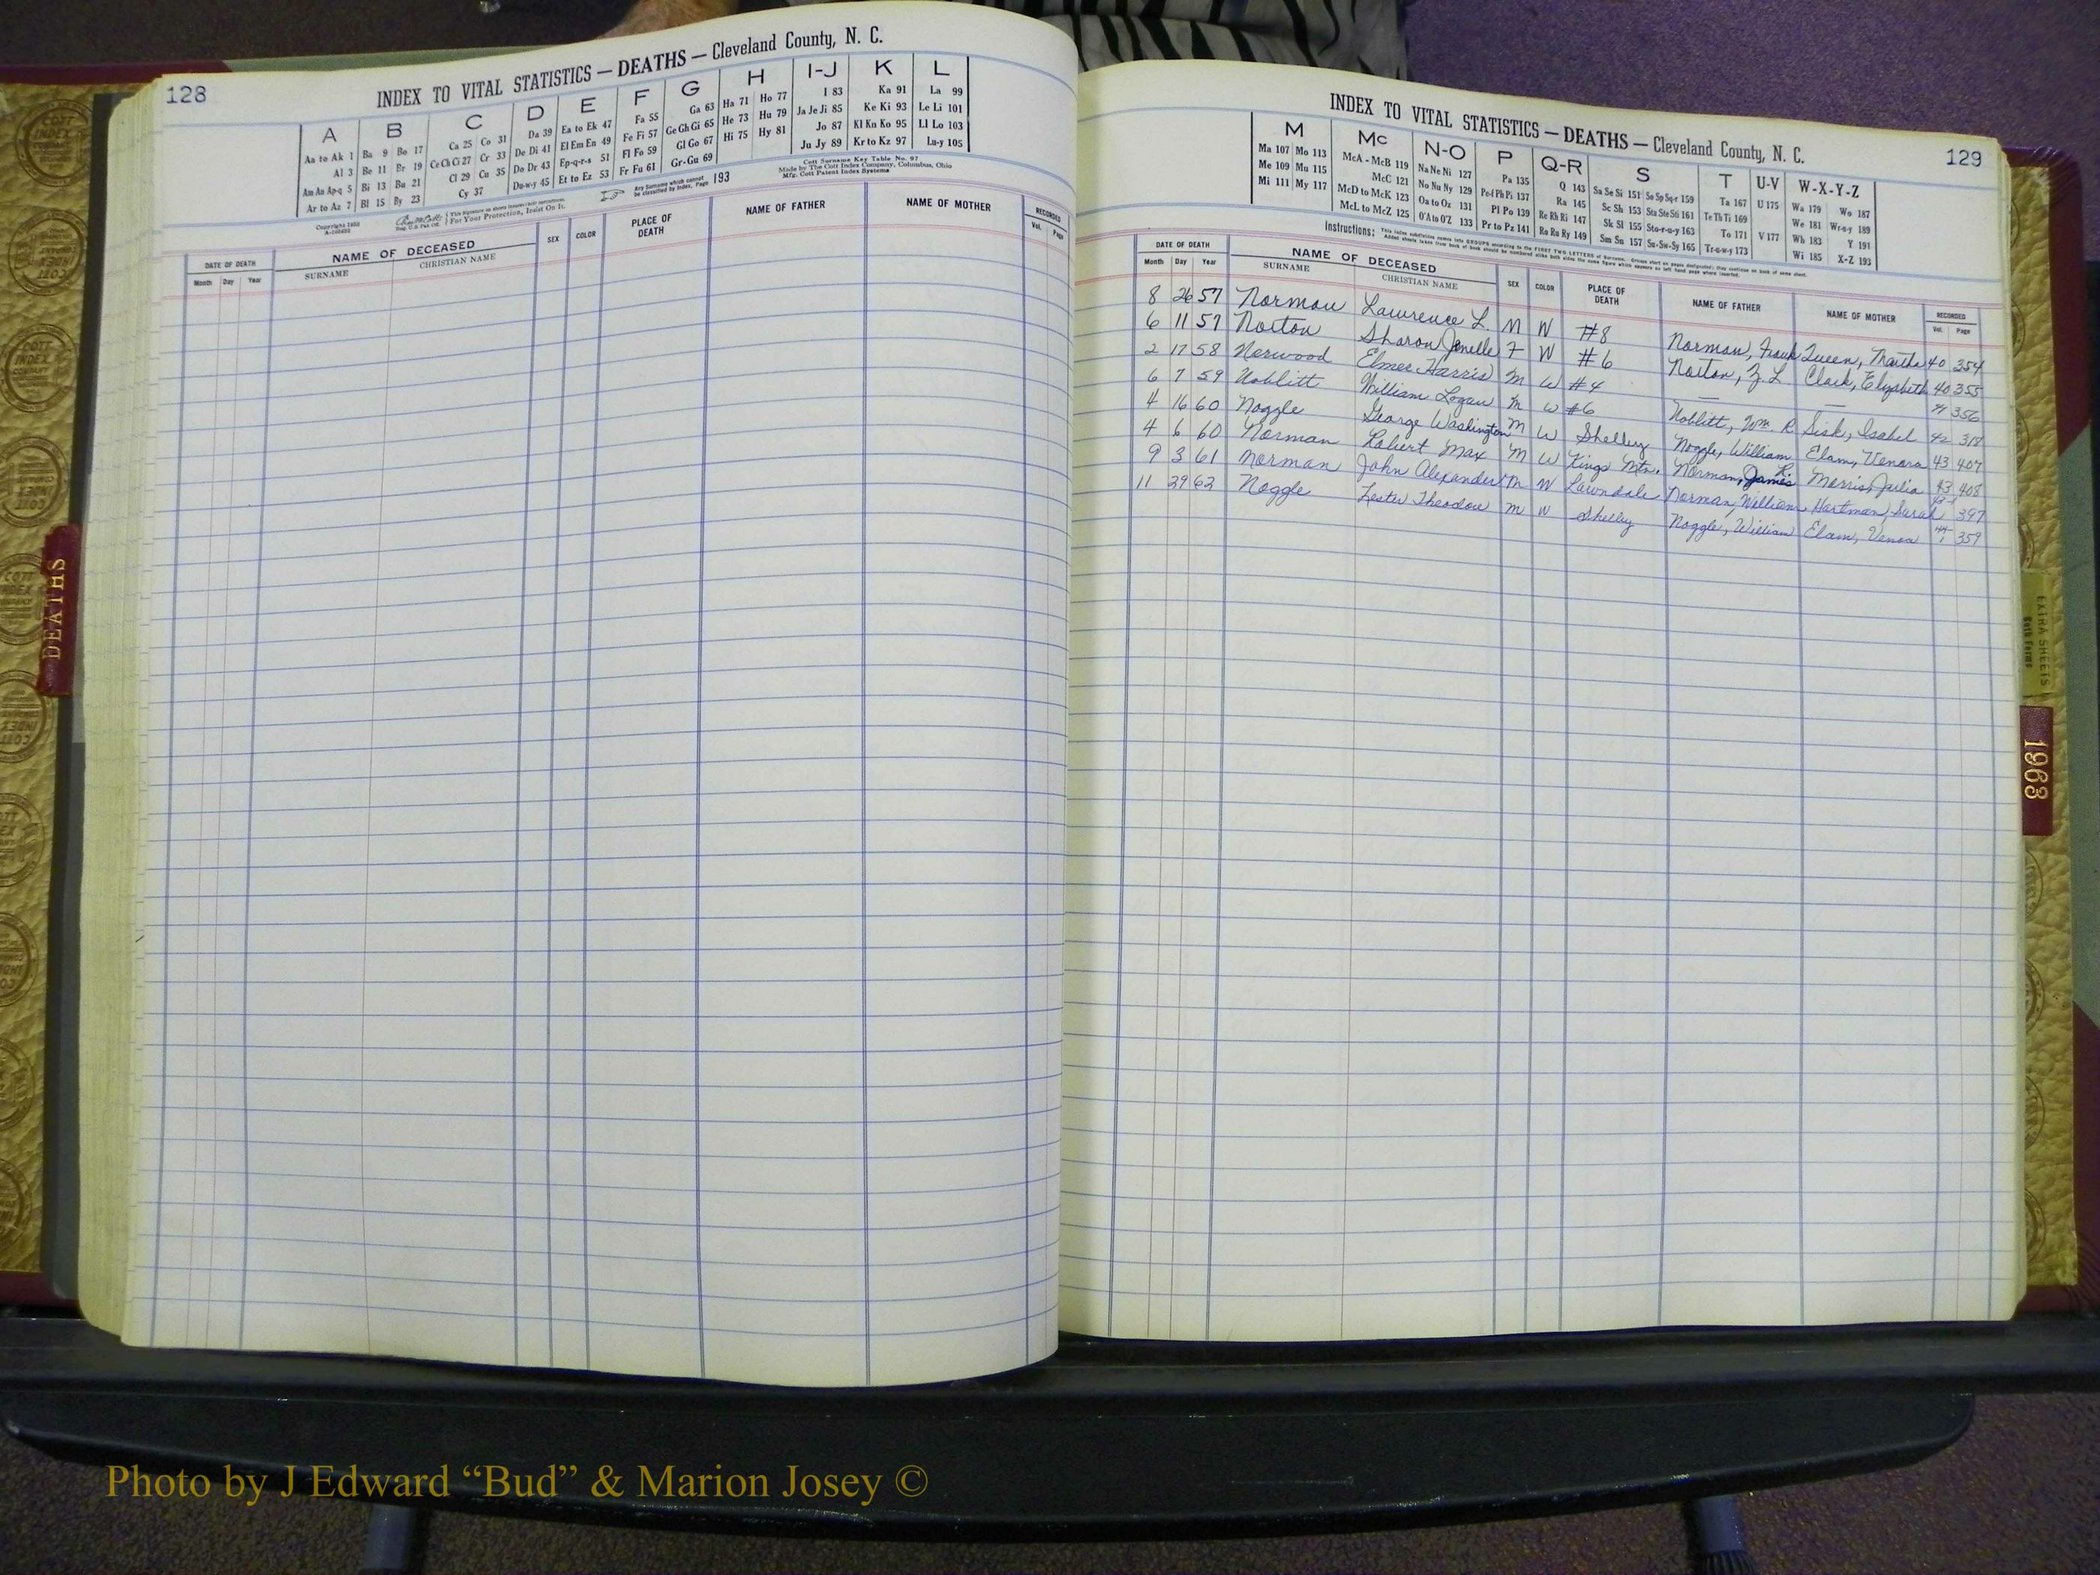 128
INDEX TO VITAL STATISTICS — DEATHS — Cleveland County, N. C.
A B C D E F G H I-J K L
Aa to Ak 1 Ba 9 Bo 17 Ca 25 Co 31 Da 39 Ea to Ek 47 Fa 55 Ga 63 Ha 71 Ho 77 I 83 Ka 91 La 99
Al 3 Be 11 Br 19 Ce Ch Ci 27 Cr 33 De Di 41 El Em En 49 Fe Fi 57 Ge Gh Gi 65 He 73 Hu 79 Ja Je Ji 85 Ke Ki 93 Le Li 101
Am An Ap-q 5 Bi 13 Bu 21 Cl 29 Cu 35 Do Dr 43 Ep-q-r-s 51 Fl Fo 59 Gl Go 67 Hi 75 Hy 81 Jo 87 Kl Kn Ko 95 Ll Lo 103
Ar to Az 7 Bl 15 By 23 Cy 37 Du-w-y 45 Et to Ez 53 Fr Fu 61 Gr-Gu 69 Ju Jy 89 Kr to Kz 97 Lu-y 105
Copyright 1953
Any Surname which cannot be classified by Index, Page 193
Cott Surname Key Table No. 97
Made by The Cott Index Company, Columbus, Ohio
Mfg. Cott Patent Index Systems
For Your Protection, Insist On It.
DATE OF DEATH NAME OF DECEASED SEX COLOR PLACE OF DEATH NAME OF FATHER NAME OF MOTHER RECORDED
Month Day Year SURNAME CHRISTIAN NAME Vol. Page
INDEX TO VITAL STATISTICS — DEATHS — Cleveland County, N. C.
129
M Mc N-O P Q-R S T U-V W-X-Y-Z
Ma 107 Mo 113 McA - McB 119 Na Ne Ni 127 Pa 135 Q 143 Sa Se Si 151 So Sp Sq-r 159 Ta 167 U 175 Wa 179 Wo 187
Me 109 Mu 115 McC 121 No Nu Ny 129 Pe-f Ph Pi 137 Ra 145 Sc Sh 153 Sta Ste Sti 161 Te Th Ti 169 We 181 Wr-u-y 189
Mi 111 My 117 McD to McK 123 Oa to Oz 131 Pl Po 139 Re Rh Ri 147 Sk Sl 155 Sto-r-u-y 163 To 171 V 177 Wh 183 Y 191
McL to McZ 125 O'A to O'Z 133 Pr to Pz 141 Ro Ru Ry 149 Sm Sn 157 Su-Sw-Sy 165 Tr-u-w-y 173 Wi 185 X-Z 193
Instructions: This index subdivides names into GROUPS according to the FIRST TWO LETTERS of Surname.
DATE OF DEATH NAME OF DECEASED SEX COLOR PLACE OF DEATH NAME OF FATHER NAME OF MOTHER RECORDED
Month Day Year SURNAME CHRISTIAN NAME Vol. Page
8 26 57 Norman Lawrence L. M W #8 Norman, Frank Queen, Martha 40 354
6 11 57 Norton Sharon Jenelle F W #6 Norton, Z. L. Clark, Elizabeth 40 355
2 17 58 Norwood Elmer Harris M W #4 — — 41 356
6 7 59 Noblitt William Logan M W #6 Noblitt, Wm R Sisk, Isabel 42 318
4 16 60 Noggle George Washington M W Shelby Noggle, William Elam, Venora 43 407
4 6 60 Norman Robert Max M W Kings Mtn. Norman, James R. Morris, Julia 43 408
9 3 61 Norman John Alexander M W Lawndale Norman, William Hartman, Sarah 43-1 397
11 29 62 Noggle Lester Theodore M W Shelby Noggle, William Elam, Venoa 44-1 359
DEATHS
EXTRA SHEETS
1963
Photo by J Edward “Bud” & Marion Josey ©